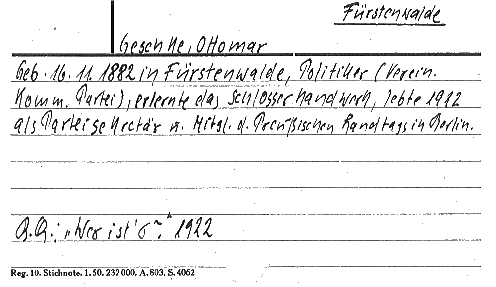 Fürstenwalde
Geschke, Ottomar
Geb. 16. 11. 1882 in Fürstenwalde, Politiker (Verein.
Komm. Partei), erlernte das Schlosserhandwerk, lebte 1922
als Parteisekretär u. Mitgl. d. Preußischen Landtags in Berlin.
"Wer ist's." 1922
Reg. 10. Stichnote. 1. 50. 232000. A. 803. S. 4062